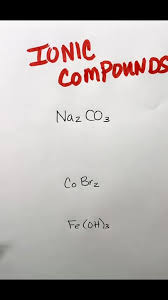 IONIC
COMPOUNDS
Na₂CO₃
CoBr₂
Fe(OH)₃